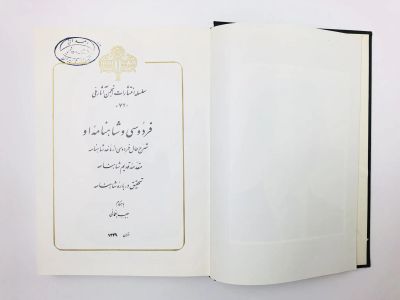 سلسله انتشارات انجمن آثار ملی
«۷۲»
فردوسی و شاهنامه او
شرح حال فردوسی از مآخذ شاهنامه
مقدمه قدیم شاهنامه
تحقیق درباره شاهنامه
باهتمام
حبیب یغمائی
تهران ۱۳۴۹